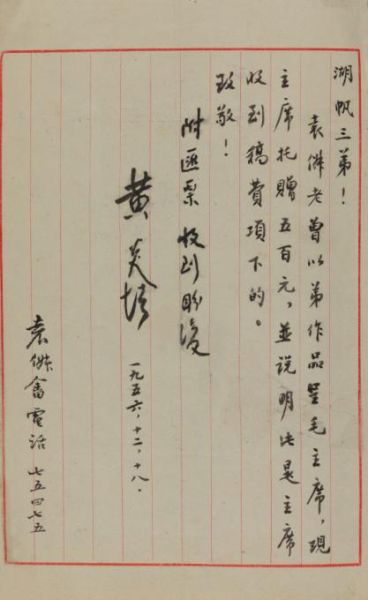 湖帆三弟！
袁帥老曾以弟作品呈毛主席，現
主席托贈五百元，並説明此是主席
收到稿費項下的。
致敬！
附匯票 收到盼復
黄炎培
一九五六，十二，十八．
袁帥畲電話 七五四七五